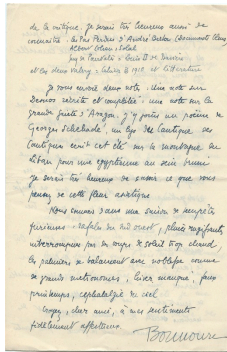 de la critique. Je serais très heureux aussi de
connaître : les Pas Perdus d'André Breton
Albert Cohen : Solal
et les deux Valéry : et littérature
Je vous envoie deux notes. Une note sur
Desnos récrite et complétée, une note sur la
grande d'Aragon. J'y joins un poème de
Georges Schehadé, un
écrit est clé sur la montagne du
Liban pour une égyptienne au sein brun.
Je serais très heureux de savoir ce que vous
pensez de cette fleur asiatique
Nous sommes dans une saison de
furieuse. rafales du sud ouest, pluies rugissantes,
interrompues par des coups de soleil trop chaud,
les palmiers se balancent avec noblesse comme
de grands métronomes, hiver manqué, faux
printemps, céphalalgie du ciel.
Croyez, cher ami, à mes sentiments
fidèlement affectueux.
Bounoure